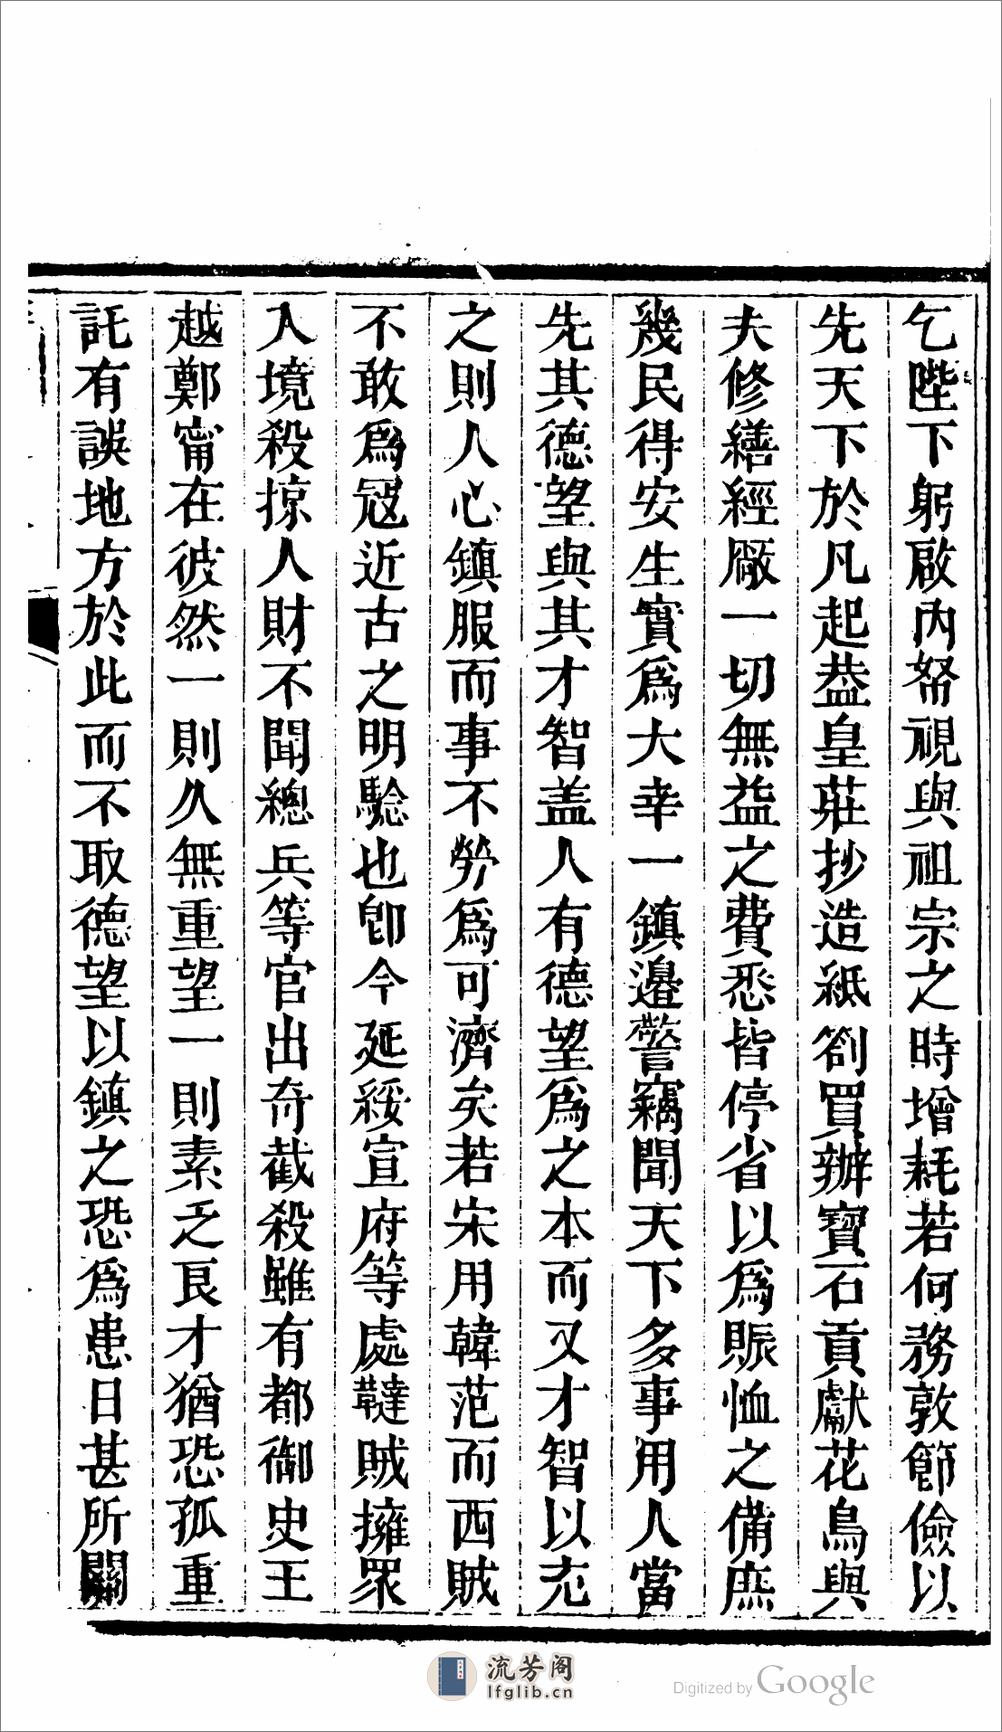 乞陛下躬啟內帑視與祖宗之時增耗若何務敦節儉以
先天下於凡起葢皇莊抄造紙劄買辦寶石貢獻花鳥與
夫修繕經厰一切無益之費悉皆停省以爲賑恤之備庶
幾民得安生實爲大幸一鎮邊警竊聞天下多事用人當
先其德望與其才智盖人有德望爲之本而又才智以充
之則人心鎮服而事不勞爲可濟矣若宋用韓范而西賊
不敢爲冦近古之明驗也卽今延綏宣府等處韃賊擁眾
入境殺掠人財不聞總兵等官出奇截殺雖有都御史王
越鄭甯在彼然一則久無重望一則素乏良才猶恐孤重
託有誤地方於此而不取德望以鎮之恐爲患日甚所關
流芳阁
lfglib.cn
Digitized by Google